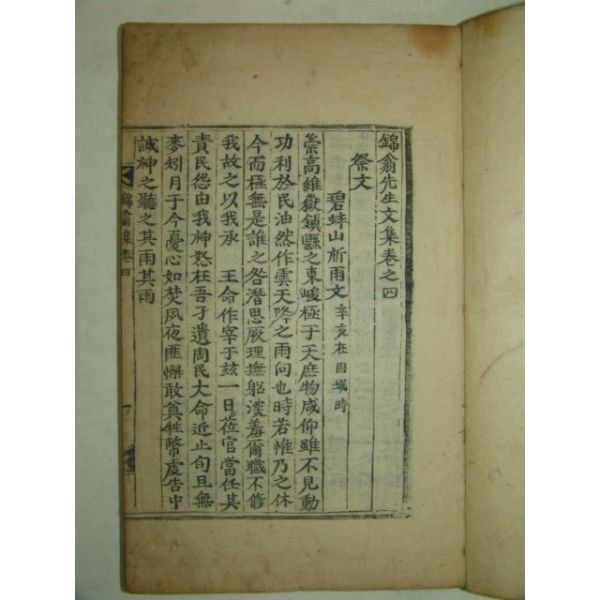 錦翁先生文集卷之四
祭文
碧蚌山祈雨文 辛亥在固城時
崇高維嶽鎮縣之東峻極于天庶物咸仰雖不見動
功利於民油然作雲天降之雨向也時若惟乃之休
今而極無是誰之咎潛思厥理撫躬深羞爾職不修
我故之以我承 王命作宰于玆一日莅官當任其
責民怨由我神怒在吾孑遺周民大命近止旬且無
麥矧月于今憂心如焚夙夜匪懈敢奠牲幣虔告中
誠神之聽之其雨其雨
錦翁集卷四
一